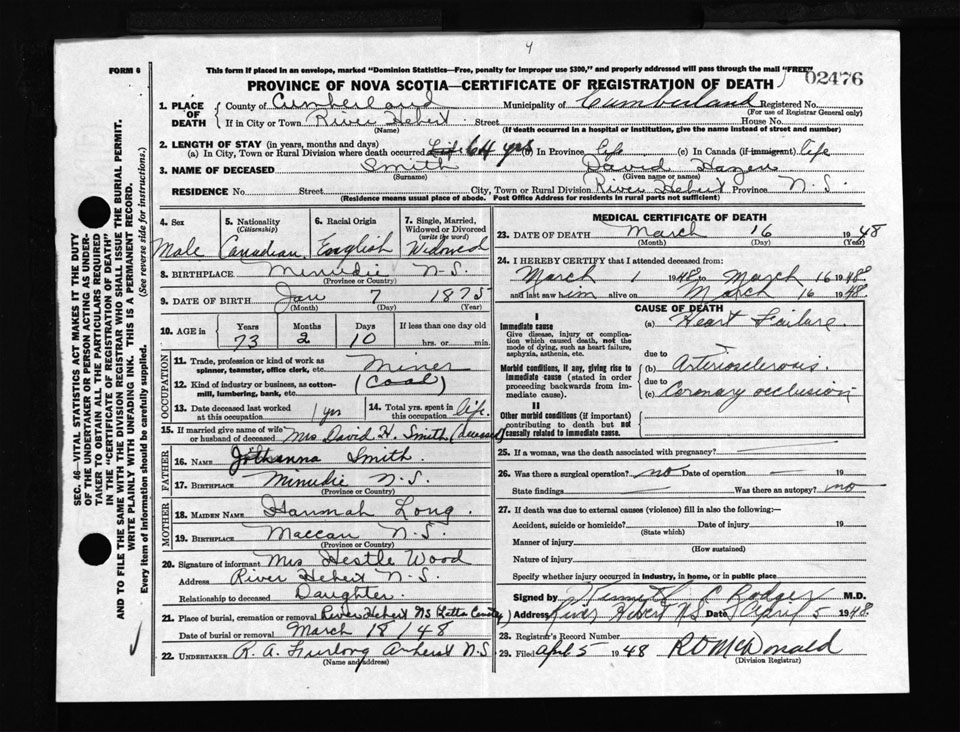 4
FORM 6
This form if placed in an envelope, marked "Dominion Statistics—Free, penalty for improper use $300," and properly addressed will pass through the mail "FREE"
PROVINCE OF NOVA SCOTIA—CERTIFICATE OF REGISTRATION OF DEATH
02476
1. PLACE OF DEATH
County of Cumberland Municipality of Cumberland Registered No.
(For use of Registrar General only)
If in City or Town River Hebert Street House No.
(Name) (If death occurred in a hospital or institution, give the name instead of street and number)
2. LENGTH OF STAY (in years, months and days)
(a) In City, Town or Rural Division where death occurred 64 yrs (b) In Province life (c) In Canada (if immigrant) life
3. NAME OF DECEASED Smith David Hazen
(Surname) (Given name or names)
RESIDENCE No. Street City, Town or Rural Division River Hebert Province N.S.
(Residence means usual place of abode. Post Office Address for residents in rural parts not sufficient)
4. Sex 5. Nationality (Citizenship) 6. Racial Origin 7. Single, Married, Widowed or Divorced (write the word)
Male Canadian English Widowed
8. BIRTHPLACE Minudie N.S.
(Province or Country)
9. DATE OF BIRTH Jan 7 1875
(Month) (Day) (Year)
10. AGE in Years Months Days If less than one day old
73 2 10 hrs. or min.
OCCUPATION
11. Trade, profession or kind of work as spinner, teamster, office clerk, etc. Miner
12. Kind of industry or business, as cotton-mill, lumbering, bank, etc. (Coal)
13. Date deceased last worked at this occupation 1 yrs 14. Total yrs. spent in this occupation life
15. If married give name of wife or husband of deceased Mrs David H. Smith (deceased)
FATHER
16. NAME Smith
17. BIRTHPLACE Minudie N.S.
(Province or Country)
MOTHER
18. MAIDEN NAME Hannah Long
19. BIRTHPLACE Maccan N.S.
(Province or Country)
20. Signature of informant Mrs Hestle Wood
Address River Hebert N.S.
Relationship to deceased Daughter.
21. Place of burial, cremation or removal River Hebert NS
Date of burial or removal March 18/48
22. UNDERTAKER R. A. Furlong Amherst N.S.
(Name and address)
MEDICAL CERTIFICATE OF DEATH
23. DATE OF DEATH March 16 1948
(Month) (Day) (Year)
24. I HEREBY CERTIFY that I attended deceased from:
March 1 1948 to March 16 1948
and last saw him alive on March 16 1948
CAUSE OF DEATH
I
Immediate cause
Give disease, injury or complication which caused death, not the mode of dying, such as heart failure, asphyxia, asthenia, etc.
(a) Heart Failure.
due to
Morbid conditions, if any, giving rise to immediate cause (stated in order proceeding backwards from immediate cause).
(b) Arteriosclerosis
due to
(c) Coronary occlusion
II
Other morbid conditions (if important) contributing to death but not causally related to immediate cause.
25. If a woman, was the death associated with pregnancy?
26. Was there a surgical operation? no Date of operation 19
State findings Was there an autopsy? no
27. If death was due to external causes (violence) fill in also the following:—
Accident, suicide or homicide? Date of injury 19
(State which)
Manner of injury
(How sustained)
Nature of injury
Specify whether injury occurred in industry, in home, or in public place
Signed by Kenneth C Rodger M.D.
Address River Hebert NS Date April 5 1948
28. Registrar's Record Number
29. Filed April 5 1948 R D McDonald
(Division Registrar)
SEC. 46—VITAL STATISTICS ACT MAKES IT THE DUTY
OF THE UNDERTAKER OR PERSON ACTING AS UNDERTAKER TO OBTAIN ALL THE PARTICULARS REQUIRED
IN THE "CERTIFICATE OF REGISTRATION OF DEATH"
AND TO FILE THE SAME WITH THE DIVISION REGISTRAR WHO SHALL ISSUE THE BURIAL PERMIT.
WRITE PLAINLY WITH UNFADING INK. THIS IS A PERMANENT RECORD.
Every item of information should be carefully supplied. (See reverse side for instructions.)